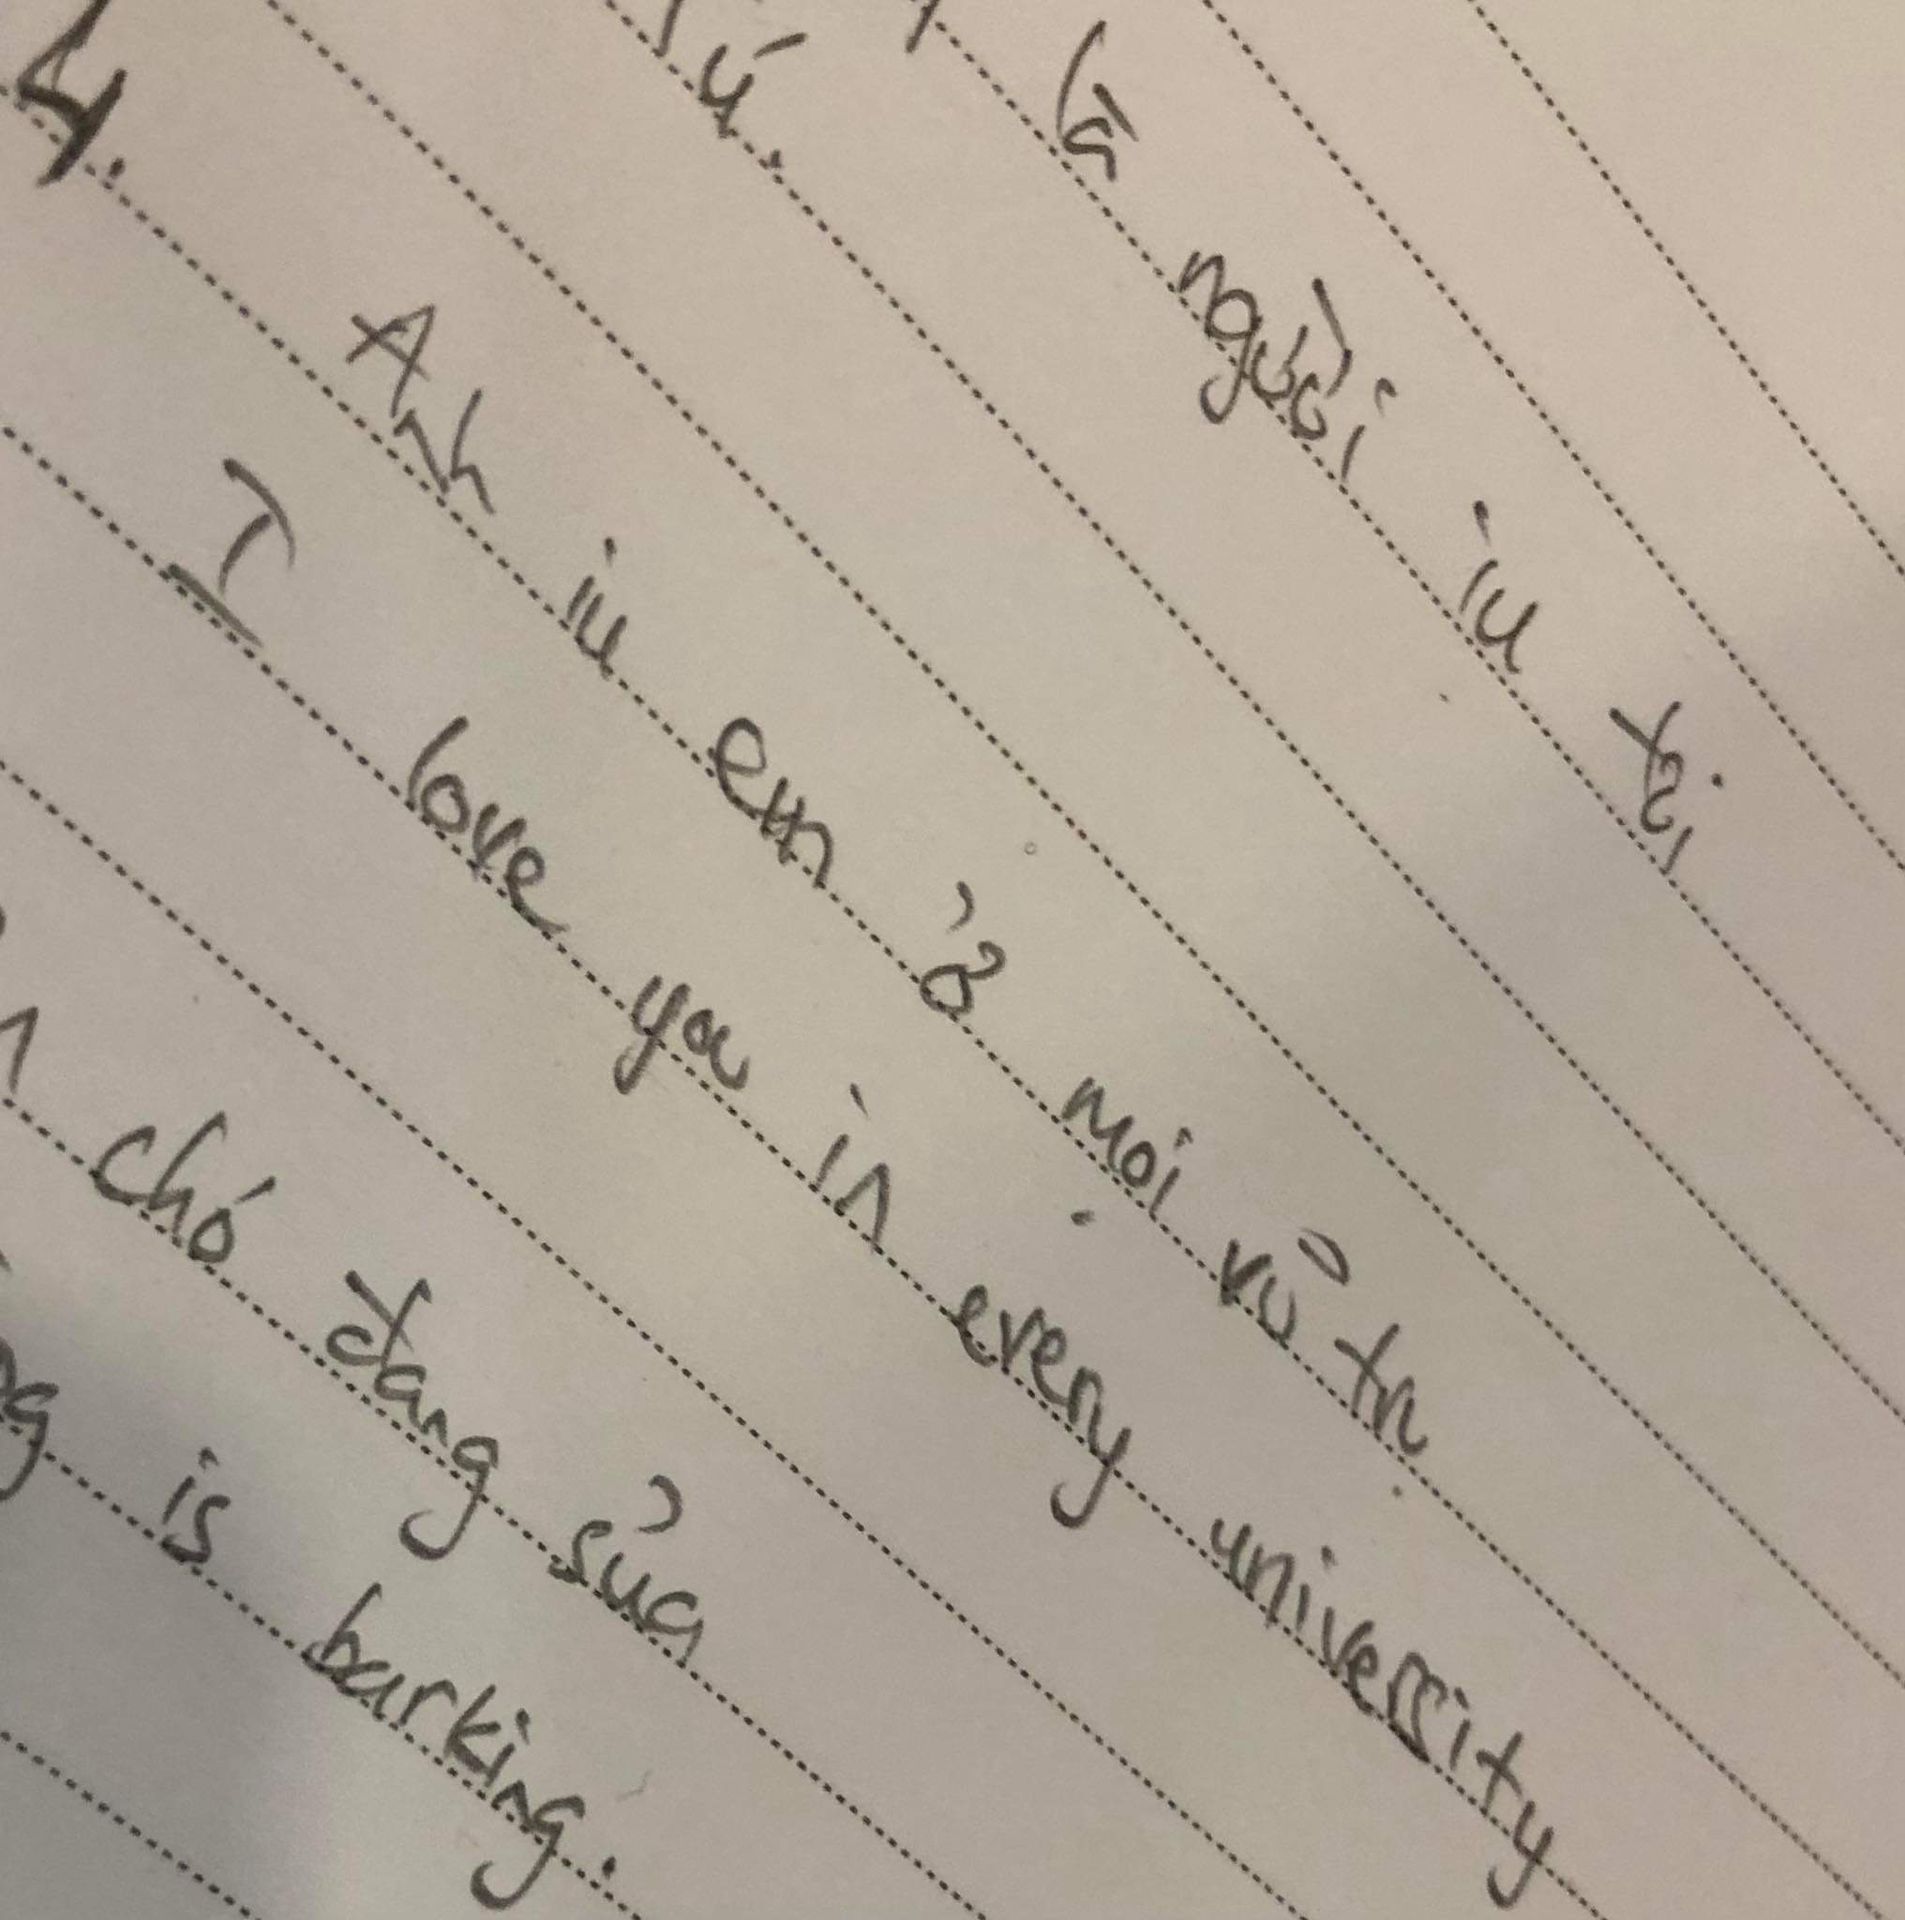 là người iu tui
Tú.
Ly.
Anh iu em ở mọi vũ trụ
I love you in every university
chó đang sủa
is barking.